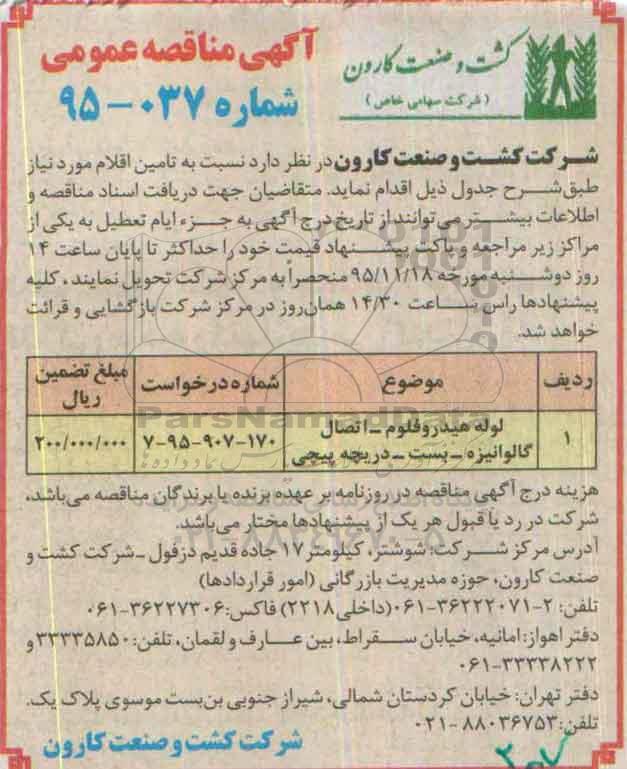 کشت و صنعت کارون
(شرکت سهامی خاص)
آگهی مناقصه عمومی
شماره ۰۳۷-۹۵
شرکت کشت و صنعت کارون در نظر دارد نسبت به تامین اقلام مورد نیاز
طبق شرح جدول ذیل اقدام نماید. متقاضیان جهت دریافت اسناد مناقصه و
اطلاعات بیشتر می‌توانند از تاریخ درج آگهی به جزء ایام تعطیل به یکی از
مراکز زیر مراجعه و پاکت پیشنهاد قیمت خود را حداکثر تا پایان ساعت ۱۴
روز دوشنبه مورخه ۹۵/۱۱/۱۸ منحصراً به مرکز شرکت تحویل نمایند، کلیه
پیشنهادها راس ساعت ۱۴/۳۰ همان‌روز در مرکز شرکت بازگشایی و قرائت
خواهد شد.
ردیف موضوع شماره درخواست مبلغ تضمین ریال
۱ لوله هیدروفلوم - اتصال گالوانیزه - بست - دریچه پیچی ۷-۹۵-۹۰۷-۱۷۰ ۲۰۰/۰۰۰/۰۰۰
ParsNamadData
هزینه درج آگهی مناقصه در روزنامه بر عهده برنده یا برندگان مناقصه می‌باشد،
شرکت در رد یا قبول هر یک از پیشنهادها مختار می‌باشد.
آدرس مرکز شرکت: شوشتر، کیلومتر ۱۷ جاده قدیم دزفول - شرکت کشت و
صنعت کارون، حوزه مدیریت بازرگانی (امور قراردادها)
تلفن: ۲-۳۶۲۲۲۰۷۱-۰۶۱ (داخلی ۲۲۱۸) فاکس: ۳۶۲۲۷۳۰۶-۰۶۱
دفتر اهواز: امانیه، خیابان سقراط، بین عارف و لقمان، تلفن: ۳۳۳۳۵۸۵۰ و
۳۳۳۳۸۲۲۲-۰۶۱
دفتر تهران: خیابان کردستان شمالی، شیراز جنوبی بن‌بست موسوی پلاک یک.
تلفن: ۸۸۰۳۶۷۵۳-۰۲۱
شرکت کشت و صنعت کارون